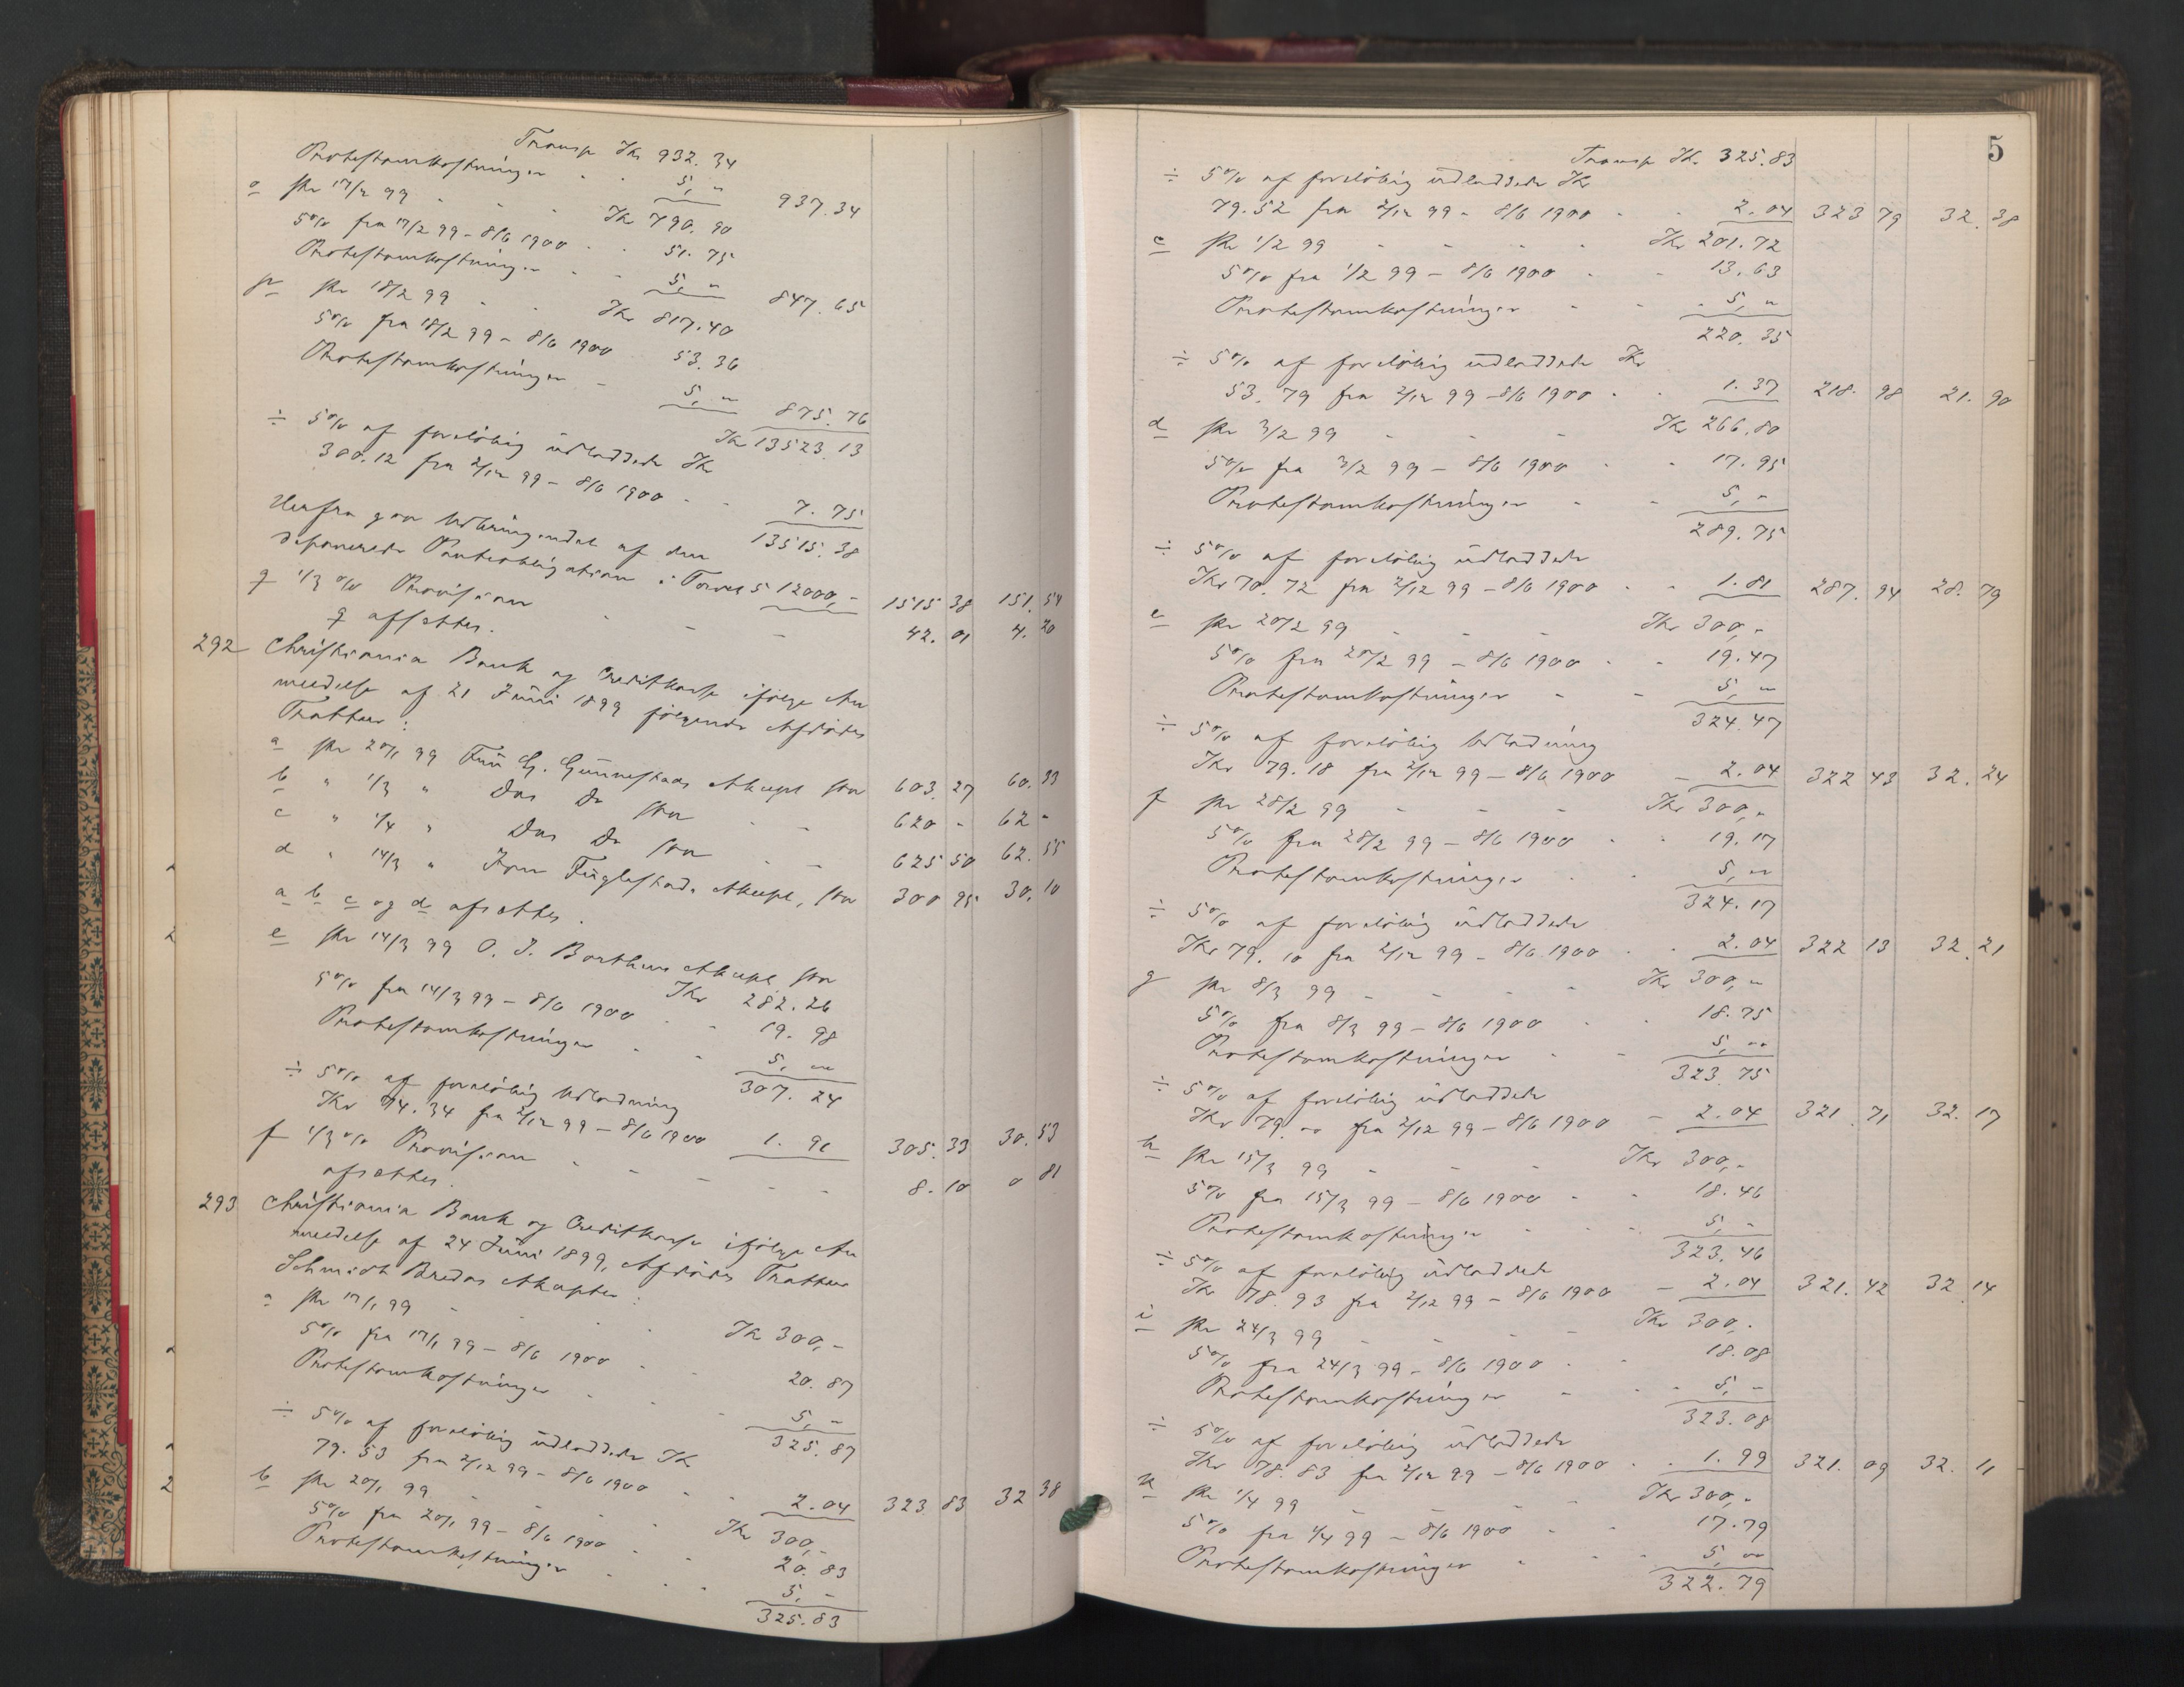 Transp Kr 932.34
Protestomkostninger - - 5,- 937.34
o pr 17/2 99 - - - Kr 790.90
5% fra 17/2 99 - 8/6 1900 - - 51.75
Protestomkostninger - - 5,- 847.65
p pr 18/2 99 - - Kr 817.40
5% fra 18/2 99 - 8/6 1900 53.36
Protestomkostninger - 5,- 875.76
Kr 13523.13
÷ 5% af foreløbig udloddede Kr
300.12 fra 2/12 99 - 8/6 1900 - - 7.75
13515.38
Herfra gaar Udbringendet af den
deponerede Panteobligation i Torvet 5 12000,- 1515 38 151.54
q 1/3 % Provision - - - 42.01 4.20
q afsættes.
292 Christiania Bank og Creditkasse ifølge An
meldelse af 21 Juni 1899 følgende Afdødes
Tratter:
a pr 20/1 99 Fru G. Gunnestads Akcept stor 603.27 60.33
b " 1/3 " Das Do stor - - 620 - 62 -
c " 1/4 " Das Do stor - - 625 50 62.55
d " 14/3 " Jon Fuglestads Akcept, stor 300 95 30.10
a b c og d afsættes.
e pr 14/3 99 O. J. Borthens Akcept stor
Kr 282.26
5% fra 14/3 99 - 8/6 1900 - - 19.98
Protestomkostninger - - 5,-
307.24
÷ 5% af foreløbig Udlodning
Kr 74.34 fra 2/12 99 - 8/6 1900 1.91 305.33 30.53
f 1/3 % Provision - - - - - 8.10 0 81
afsættes.
293 Christiania Bank og Creditkasse ifølge An
meldelse af 24 Juni 1899, Afdødes Tratter
Schmidt Bredas Akcepter:
a pr 17/1 99 - - - Kr 300,-
5% fra 17/1 99 - 8/6 1900 - - 20.87
Protestomkostninger - - - 5,-
325.87
÷ 5% af foreløbig udloddede Kr
79.53 fra 2/12 99 - 8/6 1900 - - 2.04 323 83 32 38
b pr 20/1 99 - - - Kr 300,-
5% fra 20/1 99 - 8/6 1900 - - 20.83
Protestomkostninger - - - 5,-
325.83
5
Transp Kr. 325.83
÷ 5% af foreløbig udloddede Kr
79.52 fra 2/12 99 - 8/6 1900 - - 2.04 323 79 32.38
c pr 1/2 99 - - - - Kr 201.72
5% fra 1/2 99 - 8/6 1900 - - 13.63
Protestomkostninger - - - 5,-
220.35
÷ 5% af foreløbig udloddede Kr
53.79 fra 2/12 99 - 8/6 1900 - - 1.37 218.98 21.90
d pr 3/2 99 - - - Kr 266.80
5% fra 3/2 99 - 8/6 1900 - - 17.95
Protestomkostninger - - 5,-
289.75
÷ 5% af foreløbig udloddede
Kr 70.72 fra 2/12 99 - 8/6 1900 - - 1.81 287.94 28.79
e pr 20/2 99 - - - Kr 300,-
5% fra 20/2 99 - 8/6 1900 - - 19.47
Protestomkostninger - - 5,-
324.47
÷ 5% af foreløbig Udlodning
Kr 79.18 fra 2/12 99 - 8/6 1900 - 2.04 322 43 32.24
f pr 28/2 99 - - - Kr 300,-
5% fra 28/2 99 - 8/6 1900 - - 19.17
Protestomkostninger - - 5,-
324.17
÷ 5% af foreløbig udloddede
Kr 79.10 fra 2/12 99 - 8/6 1900 - - 2.04 322 13 32.21
g pr 8/3 99 - - - - Kr 300,-
5% fra 8/3 99 - 8/6 1900 - - 18.75
Protestomkostninger - - 5,-
323.75
÷ 5% af foreløbig udloddede
Kr 79.- fra 2/12 99 - 8/6 1900 - 2.04 321.71 32.17
h pr 15/3 99 - - - Kr 300,-
5% fra 15/3 99 - 8/6 1900 - - 18.46
Protestomkostninger - - - 5,-
323.46
÷ 5% af foreløbig udloddede
Kr 78.93 fra 2/12 99 - 8/6 1900 - 2.04 321.42 32.14
i pr 24/3 99 - - - Kr 300,-
5% fra 24/3 99 - 8/6 1900 - - 18.08
Protestomkostninger - - - 5,-
323.08
÷ 5% af foreløbig udloddede
Kr 78.83 fra 2/12 99 - 8/6 1900 - - 1.99 321.09 32.11
k pr 1/4 99 - - - Kr 300,-
5% fra 1/4 99 - 8/6 1900 - - 17.79
Protestomkostninger - - - 5,-
322.79